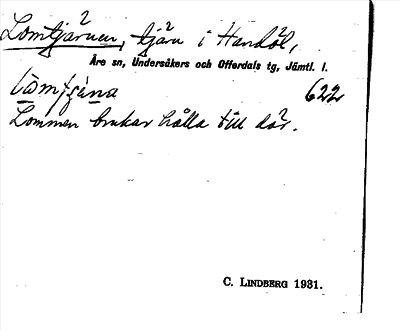 Lomtjärnen, tjärn i Handöl,
Åre sn, Undersåkers och Offerdals tg, Jämtl. l.
622
Lommen brukar hålla till där.
C. LINDBERG 1931.